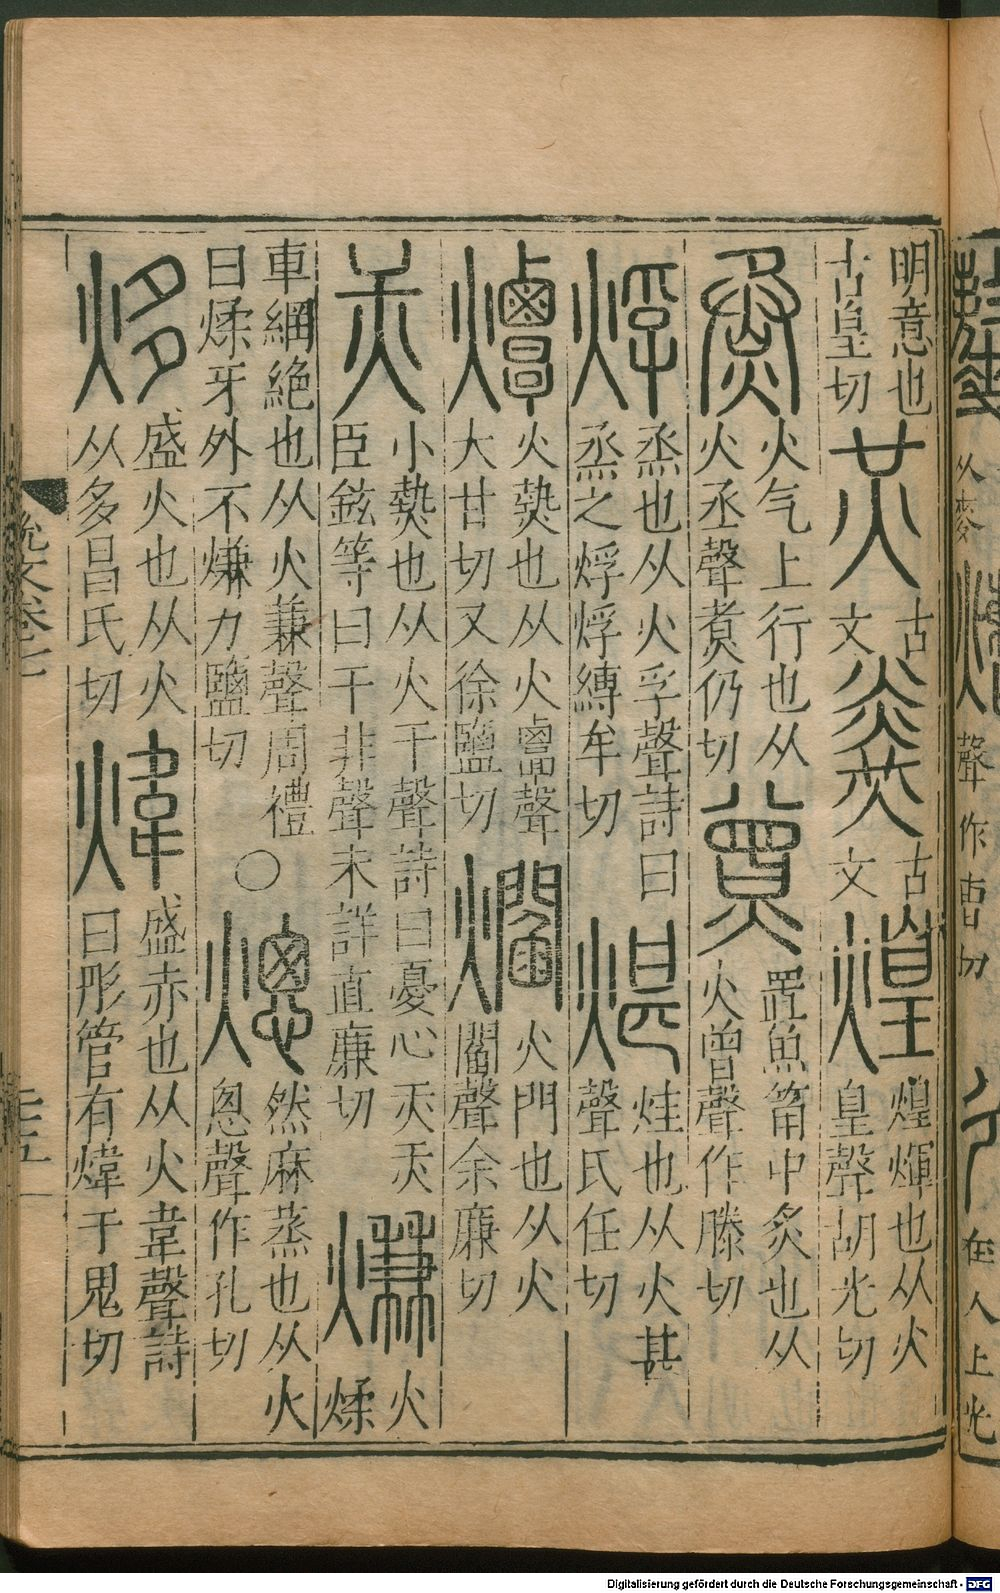 聲作曹切
在人上光
明意也
古皇切
炗
古
文
𤎫
古
文
煌
煌煇也从火
皇聲胡光切
烝
火气上行也从
火丞聲煑仍切
熷
置魚筩中炙也从
火曾聲作滕切
烰
烝也从火孚聲詩曰
烝之烰烰縛牟切
煁
烓也从火甚
聲氏任切
燂
火𤍠也从火覃聲
大甘切又徐鹽切
爓
火門也从火
閻聲余廉切
𤆎
小𤍠也从火干聲詩曰憂心𤆎𤆎
臣鉉等曰干非聲未詳直廉切
熑
火
煣
車網絶也从火兼聲周禮
曰煣牙外不熑力鹽切
○
熜
然麻蒸也从火
怱聲作孔切
㶴
盛火也从火
从多昌氏切
煒
盛赤也从火韋聲詩
曰彤管有煒于鬼切
說文卷七
Digitalisierung gefördert durch die Deutsche Forschungsgemeinschaft - DFG